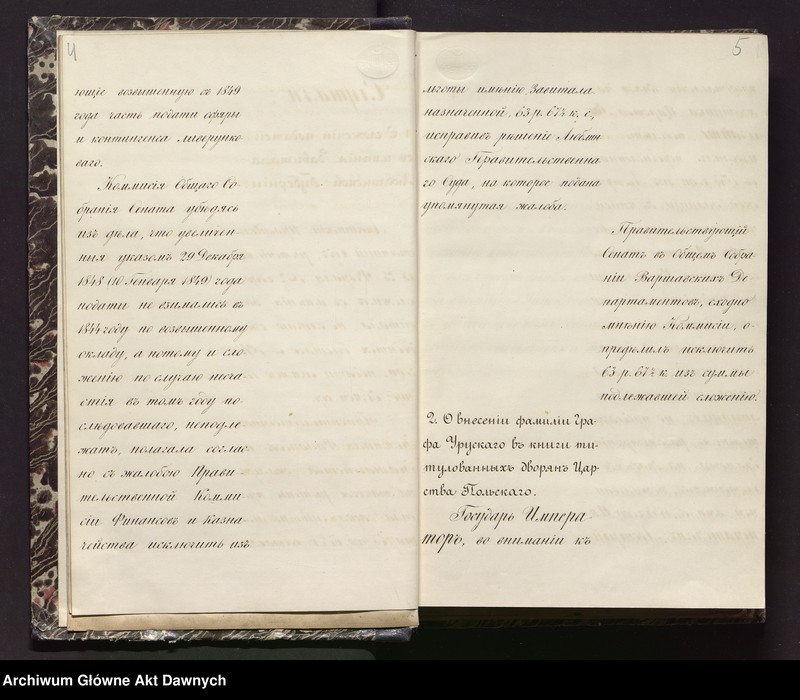 4
ющіе возвышенную съ 1849
года часть подати офяры
и контингенса ливерунко
ваго.
Коммисія Общаго Со-
бранія Сената убѣдясь
изъ дѣла, что увеличен-
ныя указомъ 29 Декабря
1848 (10 Генваря 1849) года
подати не взимались въ
1844 году по возвышенному
окладу, а потому и сло-
женію по случаю несча-
стія въ томъ году по-
слѣдовавшаго, неподле
жатъ, полагала соглас
но съ жалобою Прави-
тельственной Комми
сіи Финансовъ и Казна-
чейства исключить изъ
5
льготы имѣнію Завитала
назначенной, 63 р. 67½ к. с.,
исправивъ рѣшеніе Люблин
скаго Правительственна
го Суда, на которое подана
упомянутая жалоба.
Правительствующій
Сенатъ въ Общемъ Собра
ніи Варшавскихъ Де-
партаментовъ, сходно
мнѣнію Коммисіи, о-
предѣлилъ исключить
63 р. 67½ к. изъ суммы
подлежавшей сложенію.
2. О внесеніи фамиліи Гра-
фа Урускаго въ книги ти-
тулованныхъ дворянъ Цар-
ства Польскаго.
Государь Импера-
торъ, во вниманіи къ
Archiwum Główne Akt Dawnych